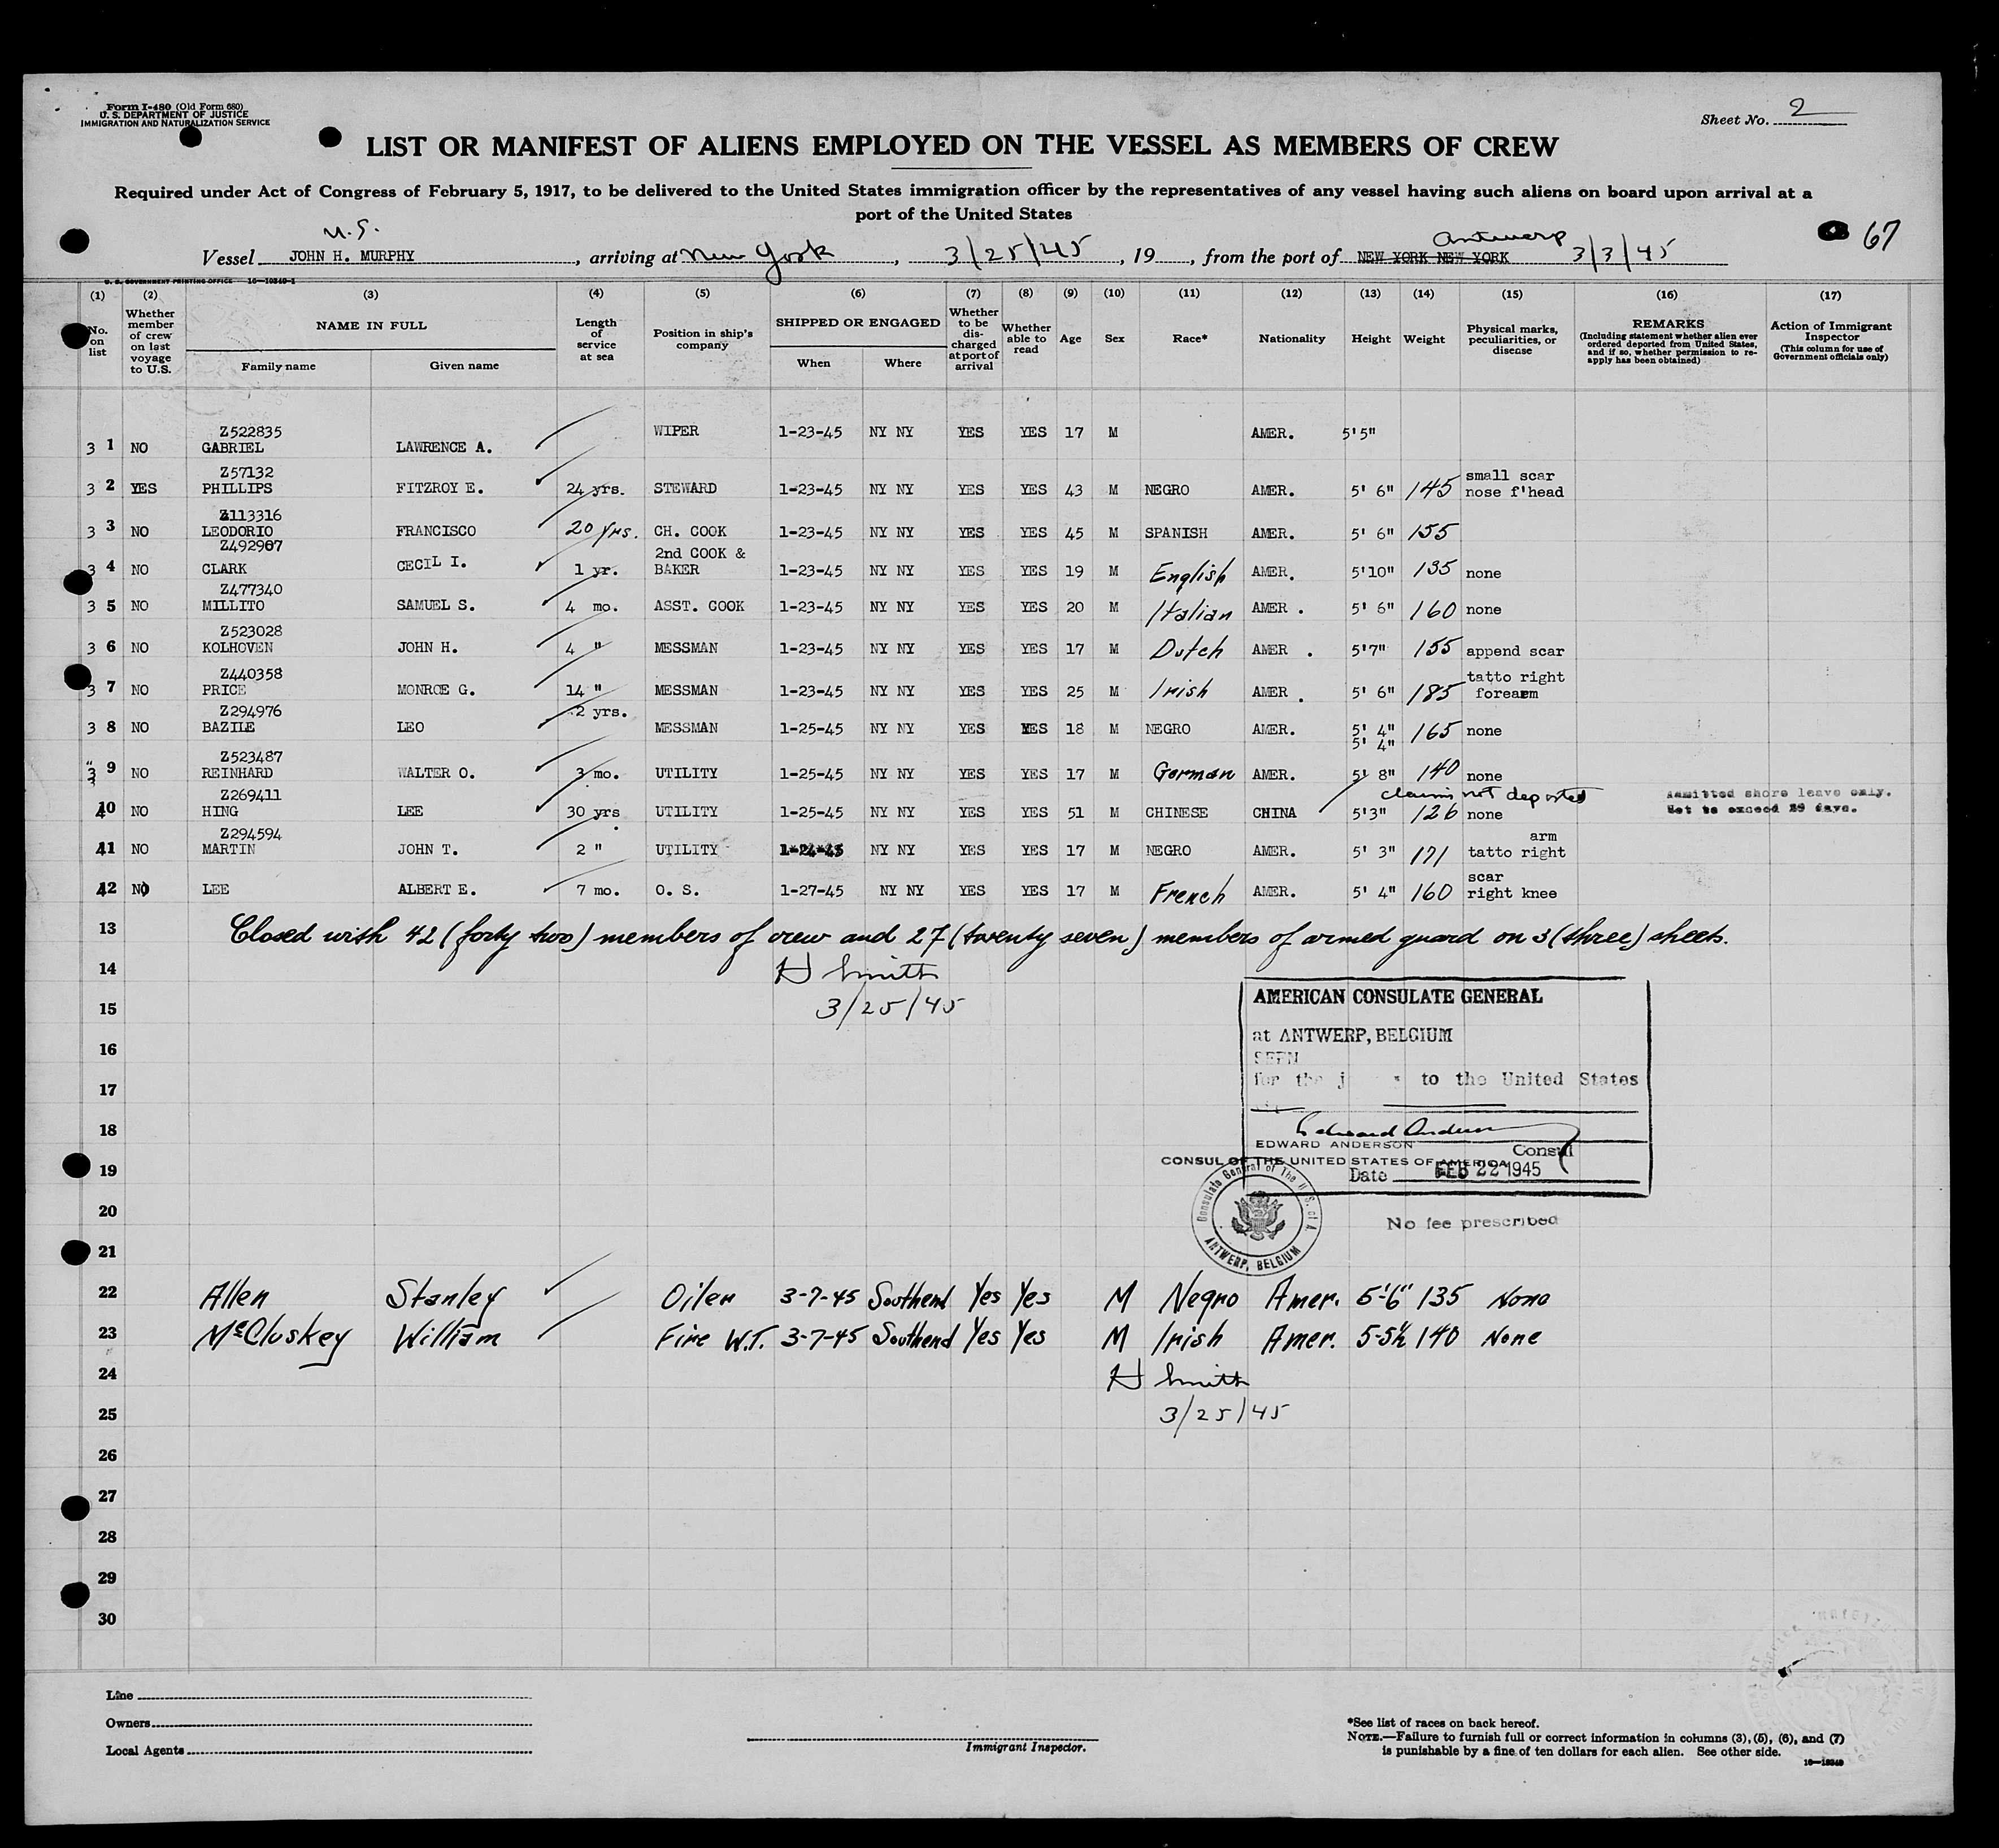 Form I-480 (Old Form 680)
U. S. DEPARTMENT OF JUSTICE
IMMIGRATION AND NATURALIZATION SERVICE
Sheet No. 2
LIST OR MANIFEST OF ALIENS EMPLOYED ON THE VESSEL AS MEMBERS OF CREW
Required under Act of Congress of February 5, 1917, to be delivered to the United States immigration officer by the representatives of any vessel having such aliens on board upon arrival at a
port of the United States
67
U.S. Antwerp
Vessel JOHN H. MURPHY, arriving at New York, 3/25/45, 19, from the port of NEW YORK NEW YORK 3/3/45
U. S. GOVERNMENT PRINTING OFFICE 16-10349-1
(1) (2) (3) (4) (5) (6) (7) (8) (9) (10) (11) (12) (13) (14) (15) (16) (17)
No. on list
Whether member of crew on last voyage to U.S.
NAME IN FULL
Family name Given name
Length of service at sea
Position in ship's company
SHIPPED OR ENGAGED
When Where
Whether to be discharged at port of arrival
Whether able to read
Age
Sex
Race*
Nationality
Height
Weight
Physical marks, peculiarities, or disease
REMARKS
(Including statement whether alien ever ordered deported from United States, and if so, whether permission to reapply has been obtained)
Action of Immigrant Inspector
(This column for use of Government officials only)
Z522835 WIPER 1-23-45 NY NY YES YES 17 M AMER. 5'5"
3 1 NO GABRIEL LAWRENCE A.
Z57132 small scar
3 2 YES PHILLIPS FITZROY E. 24 yrs. STEWARD 1-23-45 NY NY YES YES 43 M NEGRO AMER. 5' 6" 145 nose f'head
Z113316
3 3 NO LEODORIO FRANCISCO 20 yrs. CH. COOK 1-23-45 NY NY YES YES 45 M SPANISH AMER. 5' 6" 155
Z492907 2nd COOK &
3 4 NO CLARK CECIL I. 1 yr. BAKER 1-23-45 NY NY YES YES 19 M English AMER. 5'10" 135 none
Z477340
3 5 NO MILLITO SAMUEL S. 4 mo. ASST. COOK 1-23-45 NY NY YES YES 20 M Italian AMER . 5' 6" 160 none
Z523028
3 6 NO KOLHOVEN JOHN H. 4 " MESSMAN 1-23-45 NY NY YES YES 17 M Dutch AMER . 5'7" 155 append scar
Z440358 tatto right
3 7 NO PRICE MONROE G. 14 " MESSMAN 1-23-45 NY NY YES YES 25 M Irish AMER . 5' 6" 185 forearm
Z294976 2 yrs.
3 8 NO BAZILE LEO MESSMAN 1-25-45 NY NY YES YES 18 M NEGRO AMER. 5' 4" 165 none
5' 4"
Z523487
3 9 NO REINHARD WALTER O. 3 mo. UTILITY 1-25-45 NY NY YES YES 17 M German AMER. 5' 8" 140 none
Z269411 claims not deported Admitted shore leave only.
40 NO HING LEE 30 yrs UTILITY 1-25-45 NY NY YES YES 51 M CHINESE CHINA 5'3" 126 none Not to exceed 29 days.
Z294594 arm
41 NO MARTIN JOHN T. 2 " UTILITY 1-24-45 NY NY YES YES 17 M NEGRO AMER. 5' 3" 171 tatto right
scar
42 NO LEE ALBERT E. 7 mo. O. S. 1-27-45 NY NY YES YES 17 M French AMER. 5' 4" 160 right knee
13 Closed with 42 (forty two) members of crew and 27 (twenty seven) members of armed guard on 3 (three) sheets.
14 H Smith
15 3/25/45
AMERICAN CONSULATE GENERAL
at ANTWERP, BELGIUM
16
SEEN
17 for the j to the United States
18
Edward Anderson
EDWARD ANDERSON Consul
19 CONSUL OF THE UNITED STATES OF AMERICA
Date FEB 22 1945
Consulate General of The U. S. of A.
ANTWERP, BELGIUM
20
No fee prescribed
21
22 Allen Stanley Oiler 3-7-45 Southend Yes Yes M Negro Amer. 5'-6" 135 None
23 McCluskey William Fire W.T. 3-7-45 Southend Yes Yes M Irish Amer. 5-5½ 140 None
24 H Smith
25 3/25/45
26
27
28
29
30
Line
Owners
Local Agents
Immigrant Inspector.
*See list of races on back hereof.
NOTE.—Failure to furnish full or correct information in columns (3), (5), (6), and (7)
is punishable by a fine of ten dollars for each alien. See other side.
16-10349